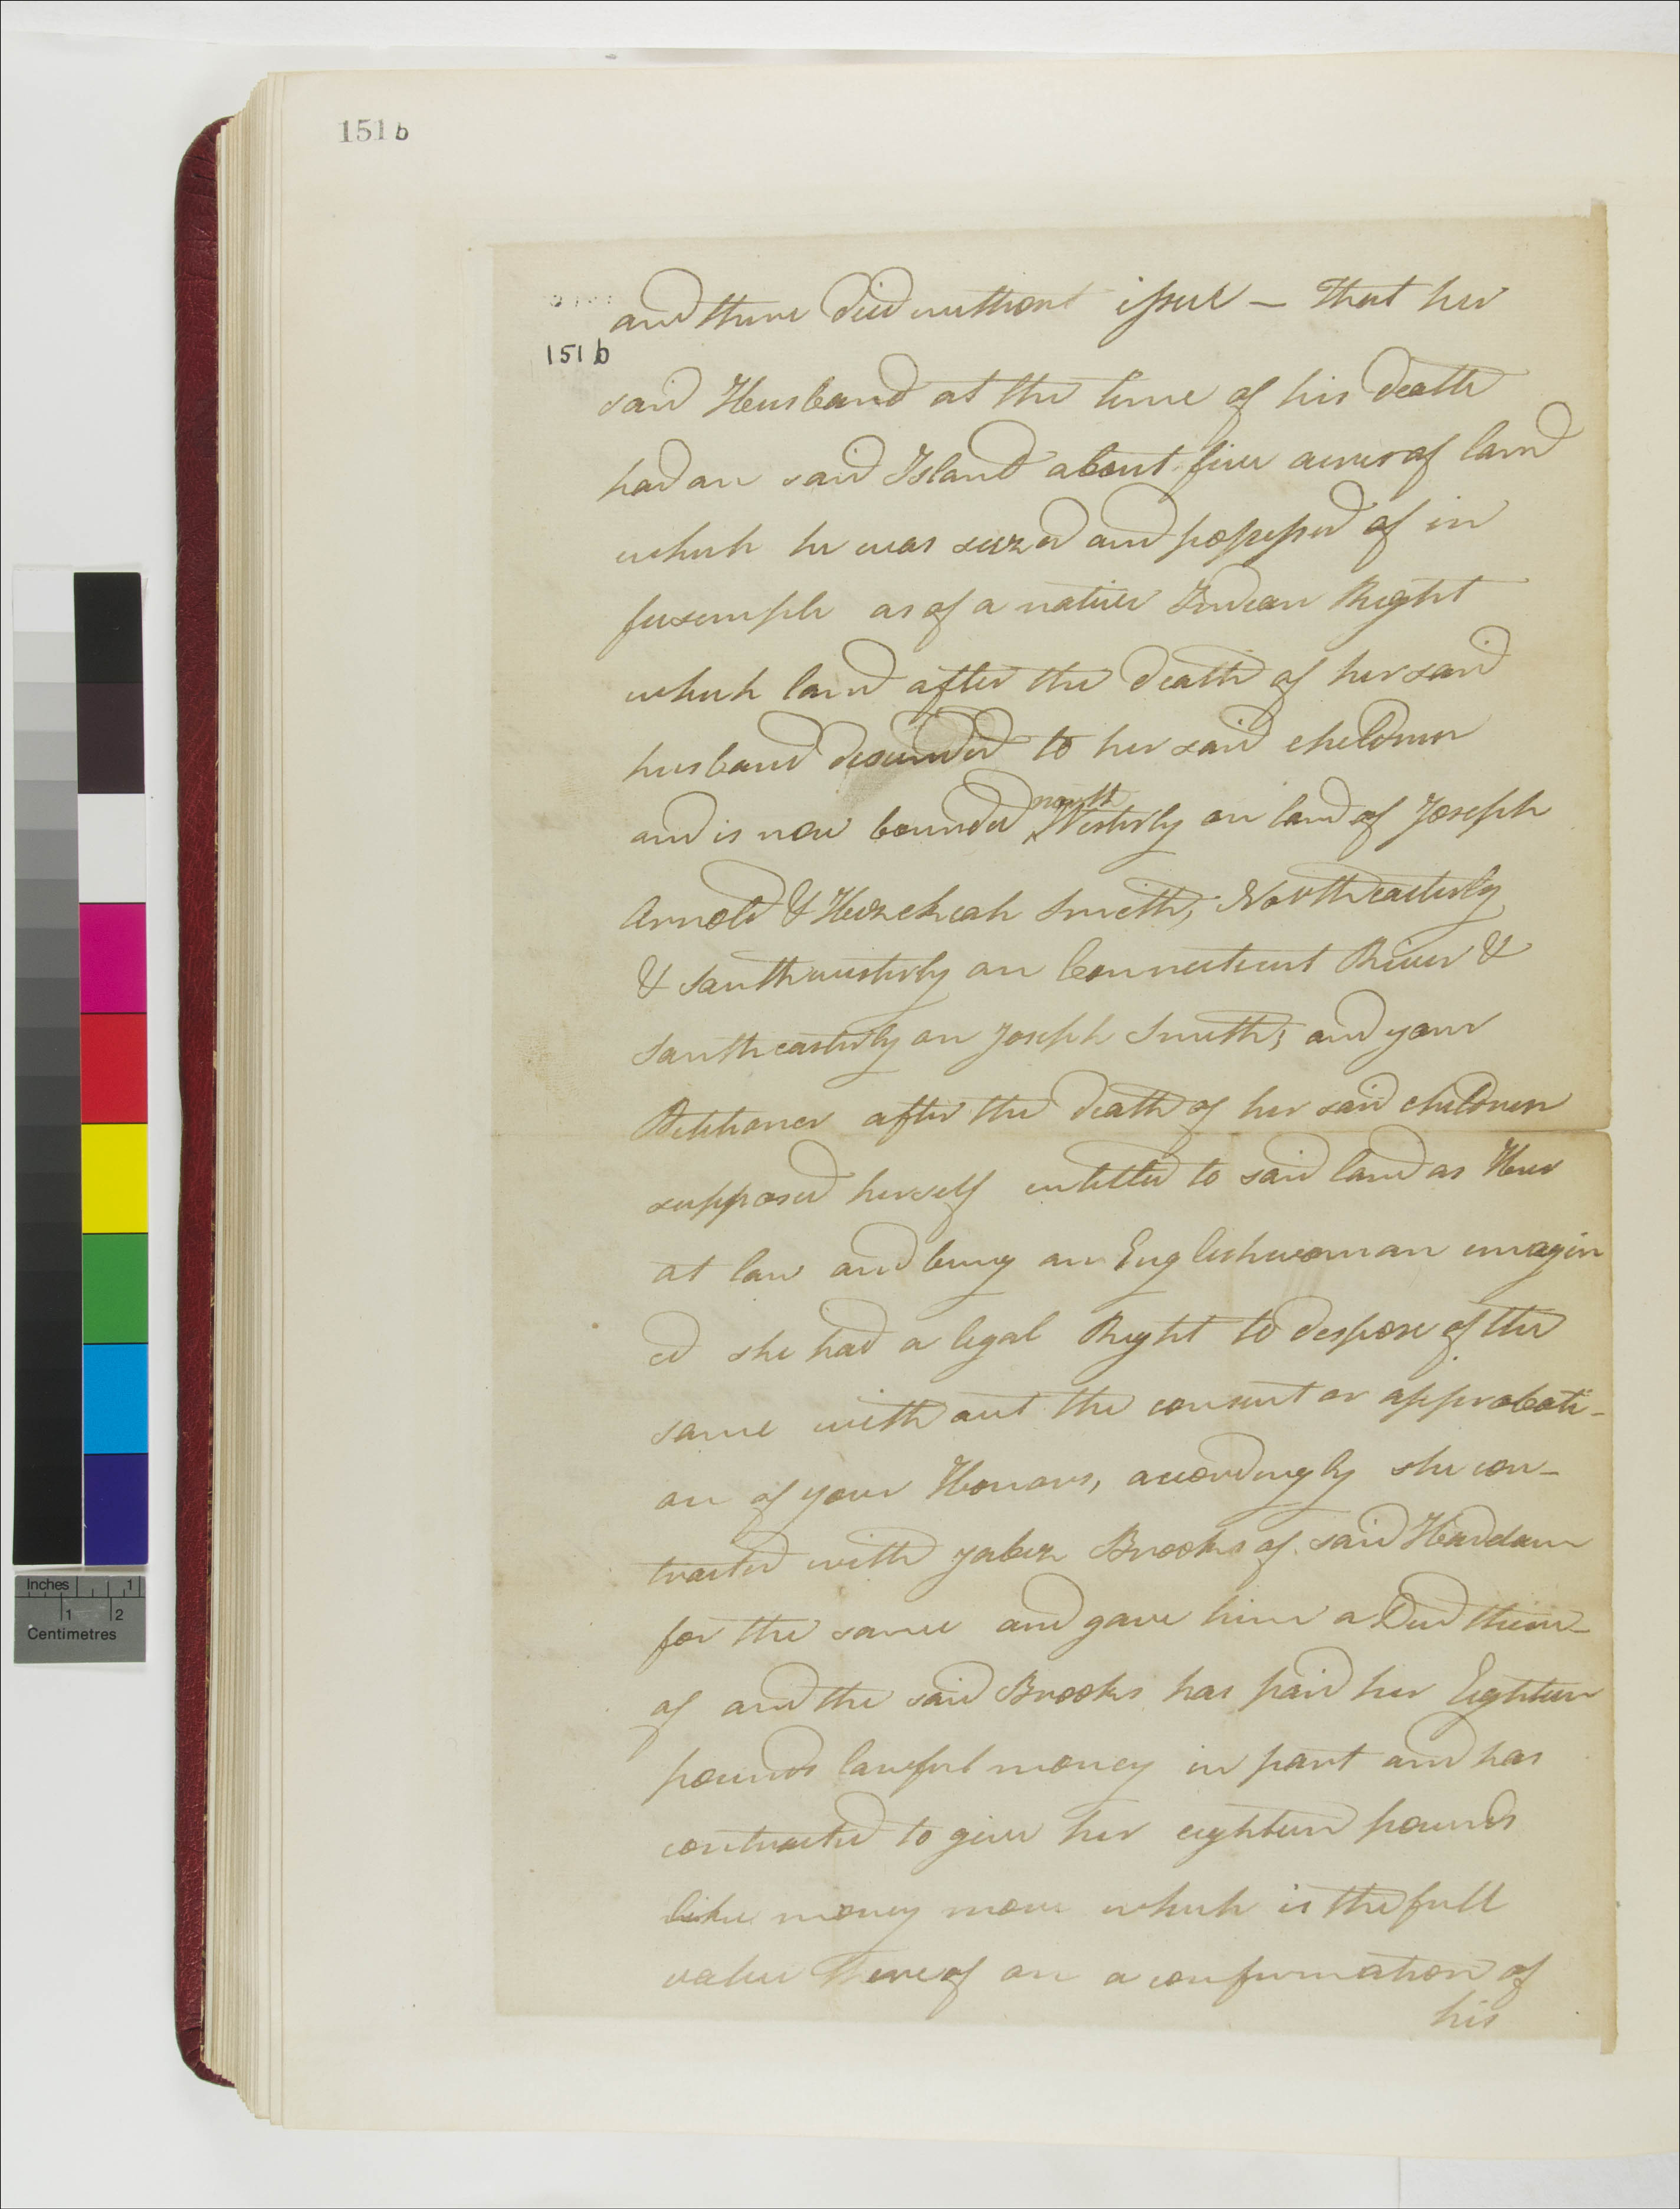 151b
and there died without issue — that her
151b
said Husband at the time of his death
had on said Island about five acres of land
which he was seized and possessed of in
feesimple as of a native Indian Right
which land after the death of her said
husband descended to her said children
and is now bounded north Westerly on land of Joseph
Arnold & Hezekiah Smith, Northeasterly
& Southwesterly on Connecticut River &
Southeasterly on Joseph Smith; and your
Petitioner after the death of her said children
supposed herself entitled to said land as Heir
at law and being an Englishwoman imagin
ed she had a legal Right to dispose of the
same with out the consent or approbati-
on of your Honors, accordingly she con-
tracted with Jabez Brooks of said Haddam
for the same and gave him a Deed there-
of and the said Brooks has paid her Eighteen
pounds lawful money in part and has
contracted to give her eighteen pounds
like money more which is the full
value thereof on a confirmation of
his
Inches 1
1 2
Centimetres